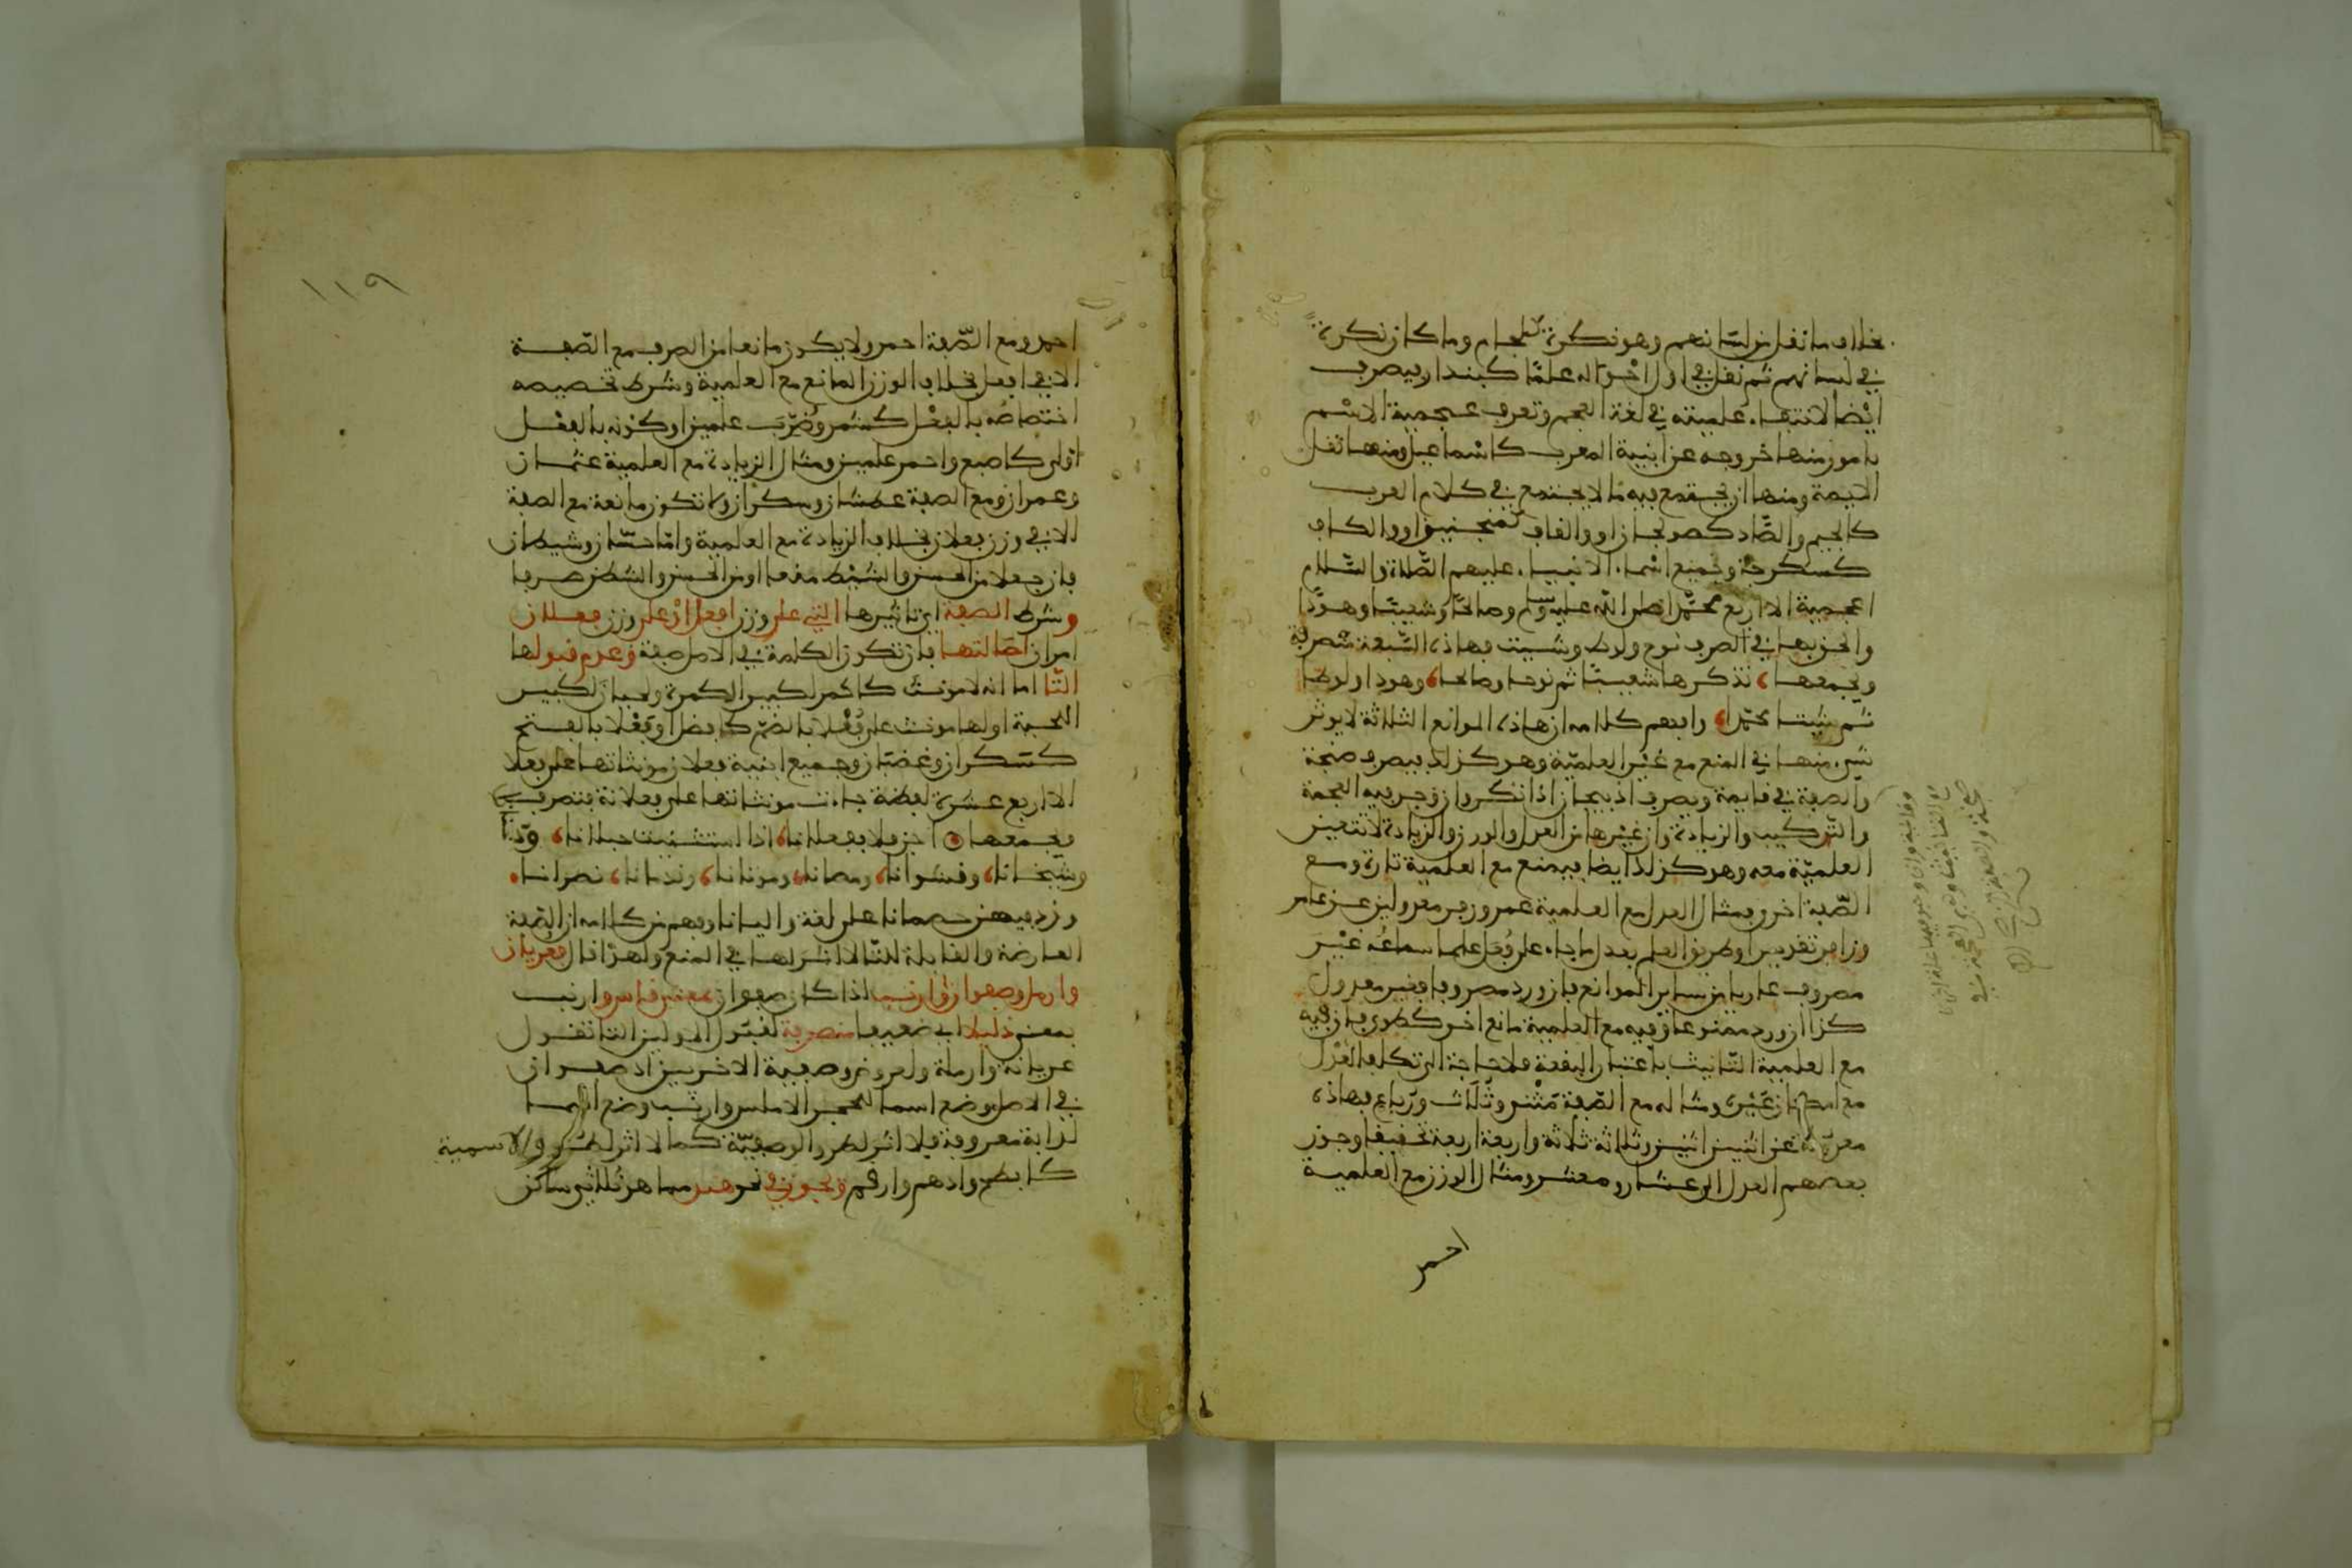 بخلاف ما نقل من لسانهم وهو نكرة كلجام وما كان نكرة
في لسانهم ثم نقل في اول احواله علما كبندار فيصرف
ايضا لانتفاء علميته في لغة العجم وتعرف عجمية الاسم
بامور منها خروجه عن ابنية المعرب كاسماعيل ومنها نقل
الايمة ومنها ان يجتمع فيه ما لا يجتمع في كلام العرب
كالجيم والصاد كصولجان او والقاف كمنجنيق او والكاف
كسكرجة وجميع اسماء الانبياء عليهم الصلاة والسلام
اعجمية الا اربع محمد صلى الله عليه وسلم وصالحا وشعيبا وهودا
والحق بها في الصرف نوح ولوط وشيت فهاذه السبعة منصرفة
ويجمعها، تذكر هاشعيبا ثم نوحا وصالحا، وهودا ولوطا
ثم شيتا محمدا، وافهم كلامه ان هاذه الموانع الثلاثة لا يوثر
شيء منها في المنع مع غير العلمية وهو كذلك فيصرف صنجة
والصفة في قايمة ويصرف اذربيجان اذا نكر وان وجد فيه العجمة
والتركيب والزيادة وان غيرها من العدل والوزن والزيادة لا تتعين
العلمية معه وهو كذلك ايضا فيمنع مع العلمية تارة ومع
الصفة اخرى فمثال العدل مع العلمية عمر وزفر معدولين عن عامر
وزافر تقديرا وطريق العلم بعدل ما جاء على فعل علما سماعه غير
مصروف عاريا من ساير الموانع فان ورد مصروفا فغير معدول
كذا ان ورد ممنوعا وفيه مع العلمية مانع اخر كطوى فان فيه
مع العلمية التانيث باعتبار البقعة فلا حاجة الى تكلف العدل
مع امكان غيره ومثاله مع الصفة مثنى وثلاث ورباع فهاذه
معدولة عن اثنين اثنين وثلاثة ثلاثة واربعة اربعة تخفيفا وجوز
بعضهم العدل الى عشار ومعشر ومثال الوزن مع العلمية
احمد
١١٩
احمد ومع الصفة احمر ولا يكون مانعا من الصرف مع الصفة
الا في افعل بخلاف الوزن المانع مع العلمية وشرطه تخصيصه
اختصاصه بالفعل كشمر وضرب علمين او كونه بالفعل
اولى كاصبع واحمر علمين ومثال الزيادة مع العلمية عثمان
وعمران ومع الصفة عطشان وسكران ولا تكون مانعة مع الصفة
الا في وزن فعلان بخلاف الزيادة مع العلمية واما حسان وشيطان
فان جعلا من الحس والشيط منعا او من الحسن والشطن صرفا
وشرط الصفة اي تاثيرها التي على وزن افعل او على وزن فعلان
امران اصالتها بان تكون الكلمة في الاصل صفة وعدم قبولها
التا اما انه لا مونث كاكمر لكبير الكمرة ولحيان لكبير
اللحية او لها مونث على فعلى بالضم كافضل او فعلى بالفتح
كسكران وغضبان وجميع ابنية فعلان مونثاتها على فعلى
الا اربع عشرة لفظة جاءت مونثاتها على فعلانة فتصرف
يجمعها اجز فعلا بفعلانا، اذا استثنيت حبلانا، ودخنانا
وسخنانا، وقشوانا، ومصانا، وموتانا، وندمانا، نصرانا
وزد فيهن خمصانا على لغة واليانا وفهم من كلامه ان الصفة
العارضة والقابلة للتا لا اثر لها في المنع ولهذا قال فعريان
وارمل وصفوان وارنب اذا كان صفوان بمعنى قاس وارنب
بمعنى ذليل اي ضعيف منصرفة لقبول الاولين التا تقول
عريانة وارملة ولعروض وصفية الاخيرين اذ صفوان
في الاصل وضع اسما للحجر الاملس وارنب وضع اسما
لدابة معروفة فلا اثر لطرو الوصفية كما لا اثر لطرو الاسمية
كابطح وادهم وارقم ويجوز في نحو هند مما هو ثلاثي ساكن